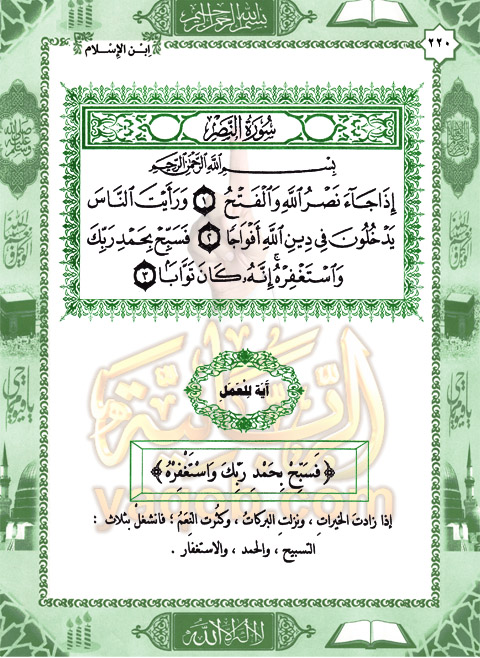 بسم الله الرحمن الرحيم
٢٢٠
ابن الإسلام
سُورَةُ النَّصْرِ
بِسْمِ اللَّهِ الرَّحْمَٰنِ الرَّحِيمِ
إِذَا جَآءَ نَصْرُ اللَّهِ وَالْفَتْحُ ١ وَرَأَيْتَ النَّاسَ
يَدْخُلُونَ فِي دِينِ اللَّهِ أَفْوَاجًا ٢ فَسَبِّحْ بِحَمْدِ رَبِّكَ
وَاسْتَغْفِرْهُ ۚ إِنَّهُ كَانَ تَوَّابًا ٣
آيَة لِلْعَمَلِ
﴿ فَسَبِّحْ بِحَمْدِ رَبِّكَ وَاسْتَغْفِرْهُ ﴾
إذا زادت الخيرات ، ونزلت البركات ، وكثرت النعم ؛ فانشغل بثلاث :
التسبيح ، والحمد ، والاستغفار .
لا إله إلا الله